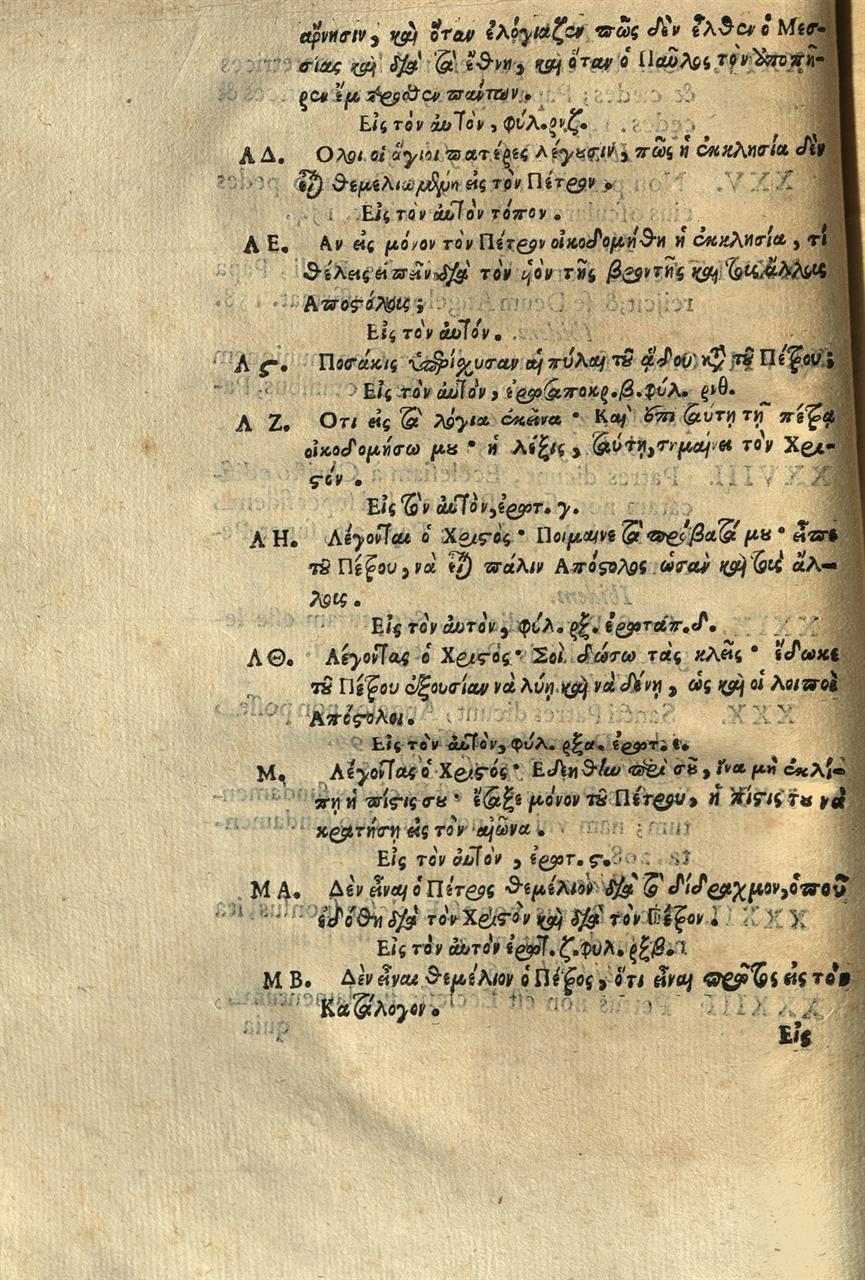 ἄρνησιν, καὶ ὅταν ἐλόγιαζεν πῶς δὲν ἦλθεν ὁ Μεσ-
σίας καὶ διὰ τὰ ἔθνη, καὶ ὅταν ὁ Παῦλος τὸν
ἔμπροσθεν πάντων.
Εἰς τὸν αὐτὸν, φύλ. ρνζ.
ΛΔ. Ολοι οἱ ἅγιοι πατέρες λέγουσιν, πῶς ἡ ἐκκλησία δὲν
θεμελιωμένη εἰς τὸν Πέτρον.
Εἰς τὸν αὐτὸν τόπον.
ΛΕ. Αν εἰς μόνον τὸν Πέτρον οἰκοδομήθη ἡ ἐκκλησία, τί
θέλεις εἰπεῖν διὰ τὸν ὑὸν τῆς βροντῆς καὶ τοὺς ἄλλους
Αποστόλους;
Εἰς τὸν αὐτόν.
Λϛ. Ποσάκις ὑπερίχυσαν αἱ πύλαι τοῦ ᾅδου κατὰ τοῦ Πέτρου;
Εἰς τὸν αὐτὸν, ἐρωταποκρ. β. φύλ. ρνθ.
ΛΖ. Οτι εἰς τὰ λόγια ἐκεῖνα· Καὶ ἐπὶ ταύτῃ τῇ πέτρᾳ
οἰκοδομήσω μου· ἡ λέξις, ταύτη, σημαίνει τὸν Χρι-
στόν.
Εἰς τὸν αὐτὸν, ἐρωτ. γ.
ΛΗ. Λέγοντας ὁ Χριστὸς· Ποίμαινε τὰ πρόβατά μου· εἶπε
τοῦ Πέτρου, νὰ πάλιν Απόστολος ὡσὰν καὶ τοὺς ἄλ-
λους.
Εἰς τὸν αὐτὸν, φύλ. ρξ. ἐρωτάπ. δ.
ΛΘ. Λέγοντας ὁ Χριστός· Σοὶ δώσω τὰς κλεῖς· ἔδωκε
τοῦ Πέτρου ἐξουσίαν νὰ λύῃ καὶ νὰ δένῃ, ὡς καὶ οἱ λοιποὶ
Απόστολοι.
Εἰς τὸν αὐτὸν, φύλ. ρξα. ἐρωτ. ε.
Μ. Λέγοντας ὁ Χριστός· Εδεήθην περὶ σοῦ, ἵνα μὴ ἐκλί-
πῃ ἡ πίστις σου· ἔταξε μόνον τοῦ Πέτρου, ἡ πίστις του νὰ
κρατήσῃ εἰς τὸν αἰῶνα.
Εἰς τὸν αὐτὸν, ἐρωτ. ϛ.
ΜΑ. Δὲν εἶναι ὁ Πέτρος θεμέλιον διὰ τὸ δίδραχμον, ὁποῦ
ἐδόθη διὰ τὸν Χριστὸν καὶ διὰ τὸν Πέτρον.
Εἰς τὸν αὐτὸν ἐρωτ. ζ. φυλ. ρξβ.
ΜΒ. Δὲν εἶναι θεμέλιον ὁ Πέτρος, ὅτι εἶναι πρῶτος εἰς τὸν
Κατάλογον.
Εἰς